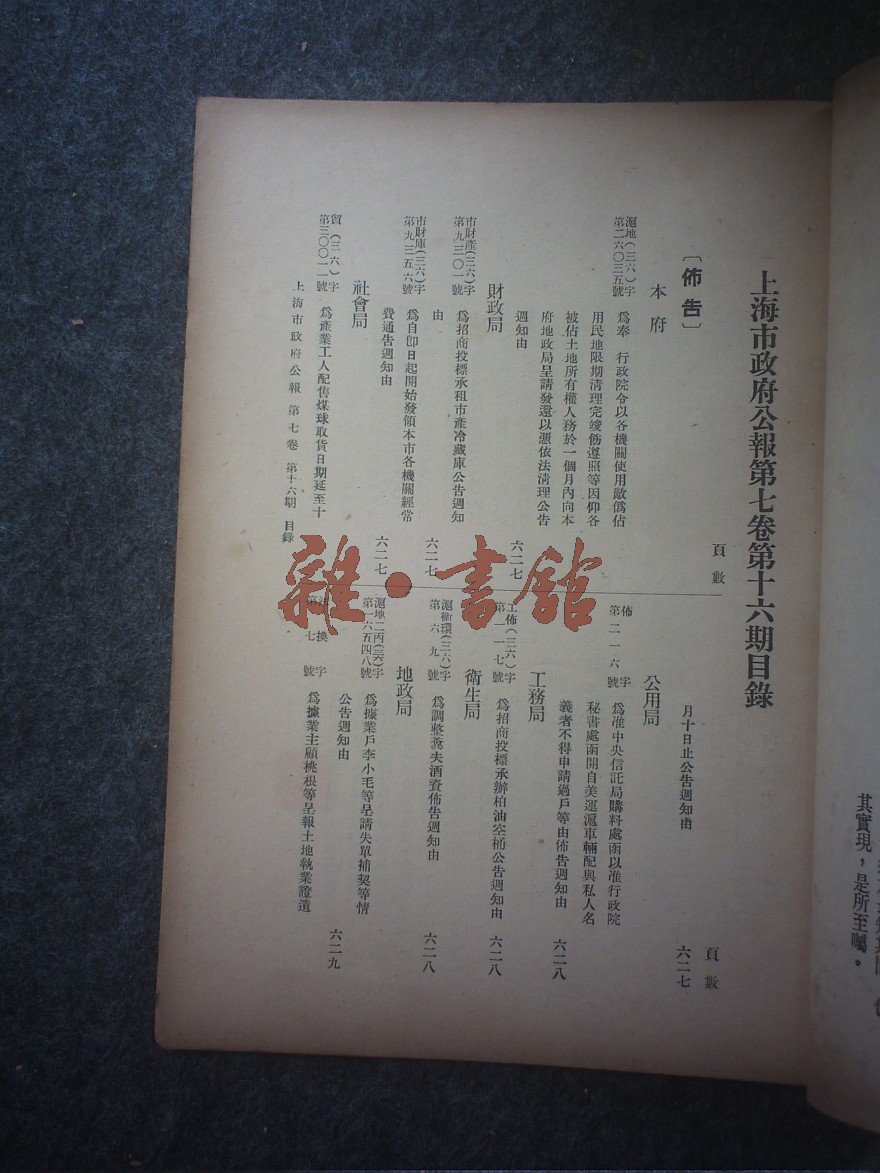 上海市政府公報第七卷第十六期目錄
頁數
〔佈告〕
本府
滬地(三六)字
第二六〇三五號
爲奉 行政院令以各機關使用敵僞佔
用民地限期清理完竣飭遵照等因仰各
被佔土地所有權人務於一個月內向本
府地政局呈請發還以憑依法清理公告
週知由
六二七
財政局
市財產(三六)字
第九三〇一號
爲招商投標承租市產冷藏庫公告週知
由
六二七
市財庫(三六)字
第九三五六號
爲自卽日起開始發領本市各機關經常
費通告週知由
六二七
社會局
貿(三六)字
第三〇〇一一號
爲產業工人配售煤球取貨日期延至十
頁數
月十日止公告週知由
六二七
公用局
佈字
第二一一六號
爲准中央信託局購料處函以准行政院
秘書處函開自美運滬車輛配與私人名
義者不得申請過戶等由佈告週知由
六二八
工務局
工佈(三六)字
第一一七號
爲招商投標承辦柏油空桶公告週知由
六二八
衛生局
滬衛環(三六)字
第六九號
爲調整糞夫酒資佈告週知由
六二八
地政局
滬地二丙(三六)字
第一六五四八號
爲據業戶李小毛等呈請失單補契等情
公告週知由
六二九
換字
第七號
爲據業主顧桃根等呈報土地執業證遺
上海市政府公報 第七卷 第十六期 目錄
雜·書館
其實現，是所至囑。